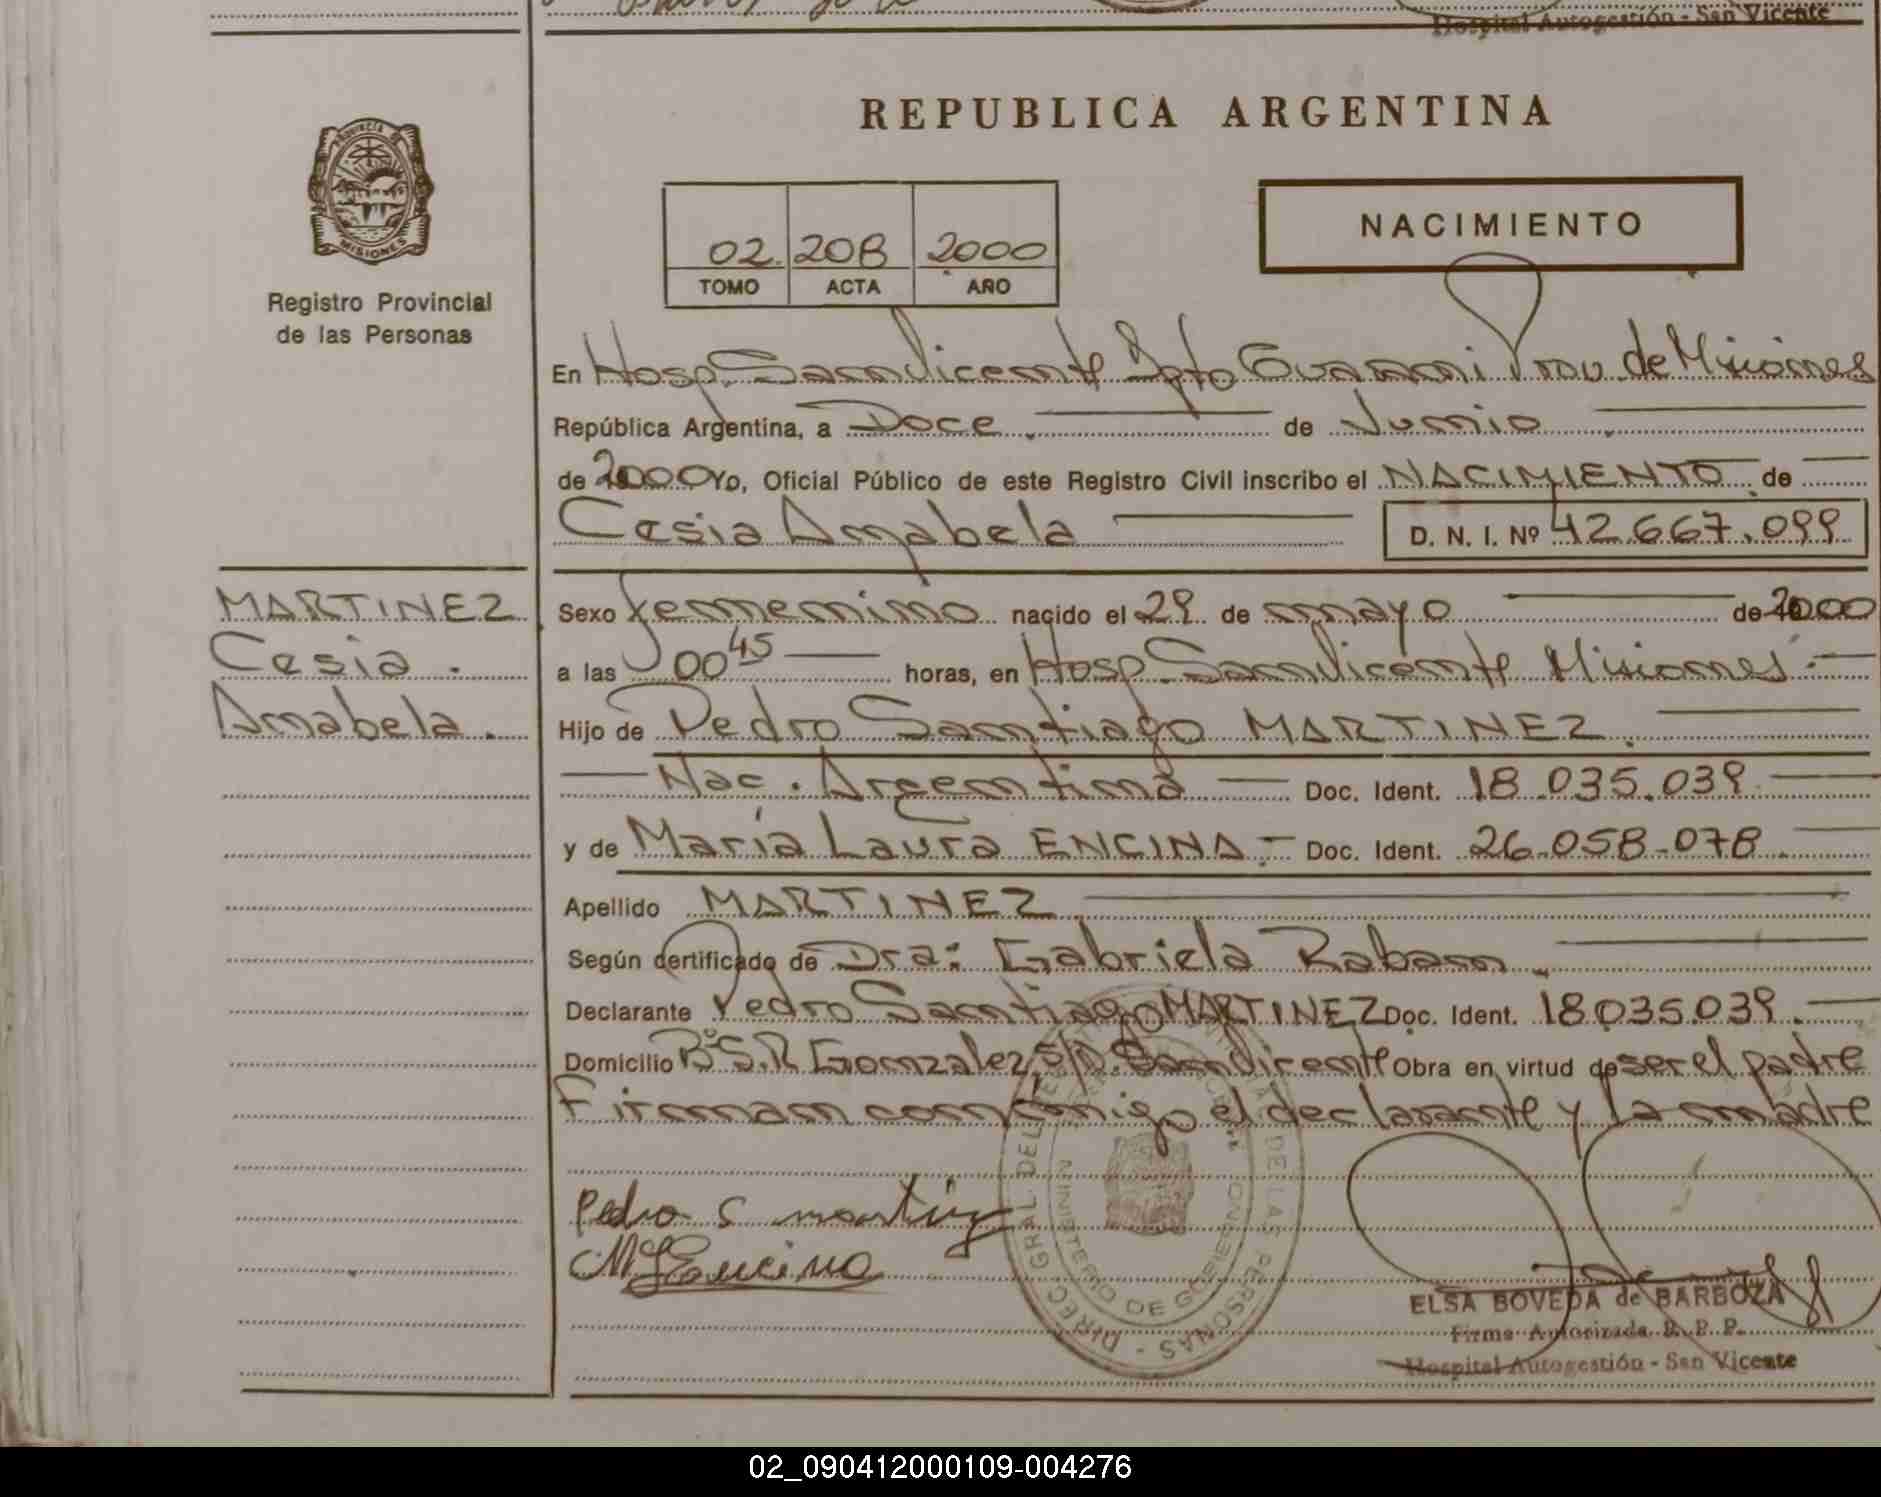 Hospital Autogestión - San Vicente
REPUBLICA ARGENTINA
PROVINCIA DE
MISIONES
Registro Provincial
de las Personas
NACIMIENTO
02. 208 2000
TOMO ACTA AÑO
En Hosp. San Vicente Dpto Guarani Prov. de Misiones
República Argentina, a Doce. de Junio.
de 2000 Yo, Oficial Público de este Registro Civil inscribo el NACIMIENTO de
Cesia Anabela D. N. I. Nº 42.667.099
MARTINEZ
Cesia.
Anabela.
Sexo femenino nacido el 29 de mayo de 2000
a las 00 45 horas, en Hosp. San Vicente Misiones.-
Hijo de Pedro Santiago MARTINEZ.
Nac. Argentina Doc. Ident. 18.035.039
y de María Laura ENCINA.- Doc. Ident. 26.058.078
Apellido MARTINEZ.
Según certificado de Dra: Gabriela Raban.
Declarante Pedro Santiago MARTINEZ Doc. Ident. 18035.039.
Domicilio Bº S.R Gonzalez S/N. San Vicente Obra en virtud de ser el padre
Firman conmigo el declarante y la madre
Pedro S martinez
M L Encina
DIREC. GRAL. DEL DE LAS PERSONAS -
MINISTERIO DE GOBIERNO
ELSA BOVEDA de BARBOZA
Firma Autorizada R. P. P.
Hospital Autogestión - San Vicente
02_090412000109-004276